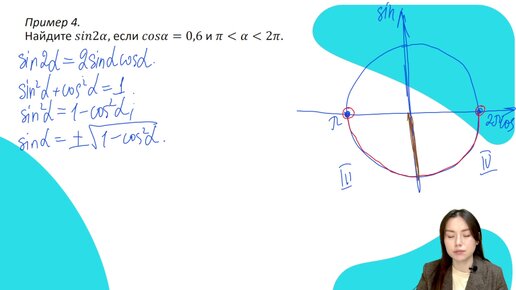 Пример 4.
Найдите 𝑠𝑖𝑛2𝛼, если 𝑐𝑜𝑠𝛼 = 0,6 и 𝜋 < 𝛼 < 2𝜋.
sin2α = 2sinα cosα.
sin²α + cos²α = 1.
sin²α = 1 - cos²α;
sinα = ±√1 - cos²α.
sin
π
2π cos
III
IV